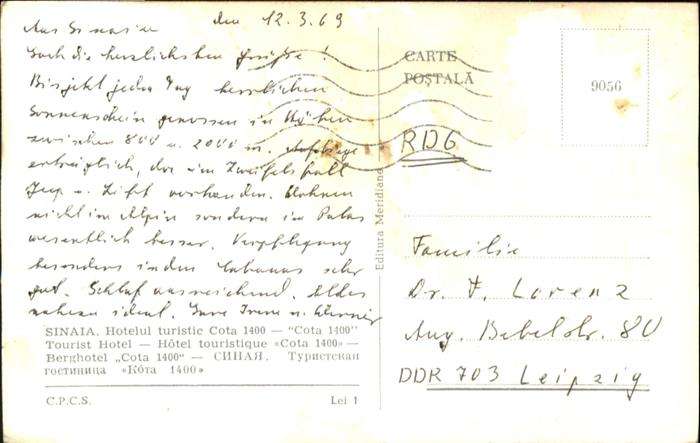 Aus Sinaia den 12.3.69
Euch die herzlichsten Grüße!
Bis jetzt jeden Tag herrlichen
Sonnenschein genossen in Höhen
zwischen 800 u. 2000 m. Aufstiege
erträglich, da im Zweifelsfall
Jeep u. Lift vorhanden. Wohnen
nicht im Alpin sondern im Palas
wesentlich besser. Verpflegung
besonders in den Cabanas sehr
gut. Schlaf ausreichend. Alles
nahezu ideal. Eure Irene u. Werner
SINAIA. Hotelul turistic Cota 1400 — “Cota 1400”
Tourist Hotel — Hôtel touristique «Cota 1400» —
Berghotel „Cota 1400“ — СИНАЯ. Туристская
гостиница «Кота 1400»
C.P.C.S. Lei 1
Editura Meridiane
CARTE
POȘTALĂ
9056
RDG
Familie
Dr. F. Lorenz
Aug. Bebelstr. 80
DDR 703 Leipzig